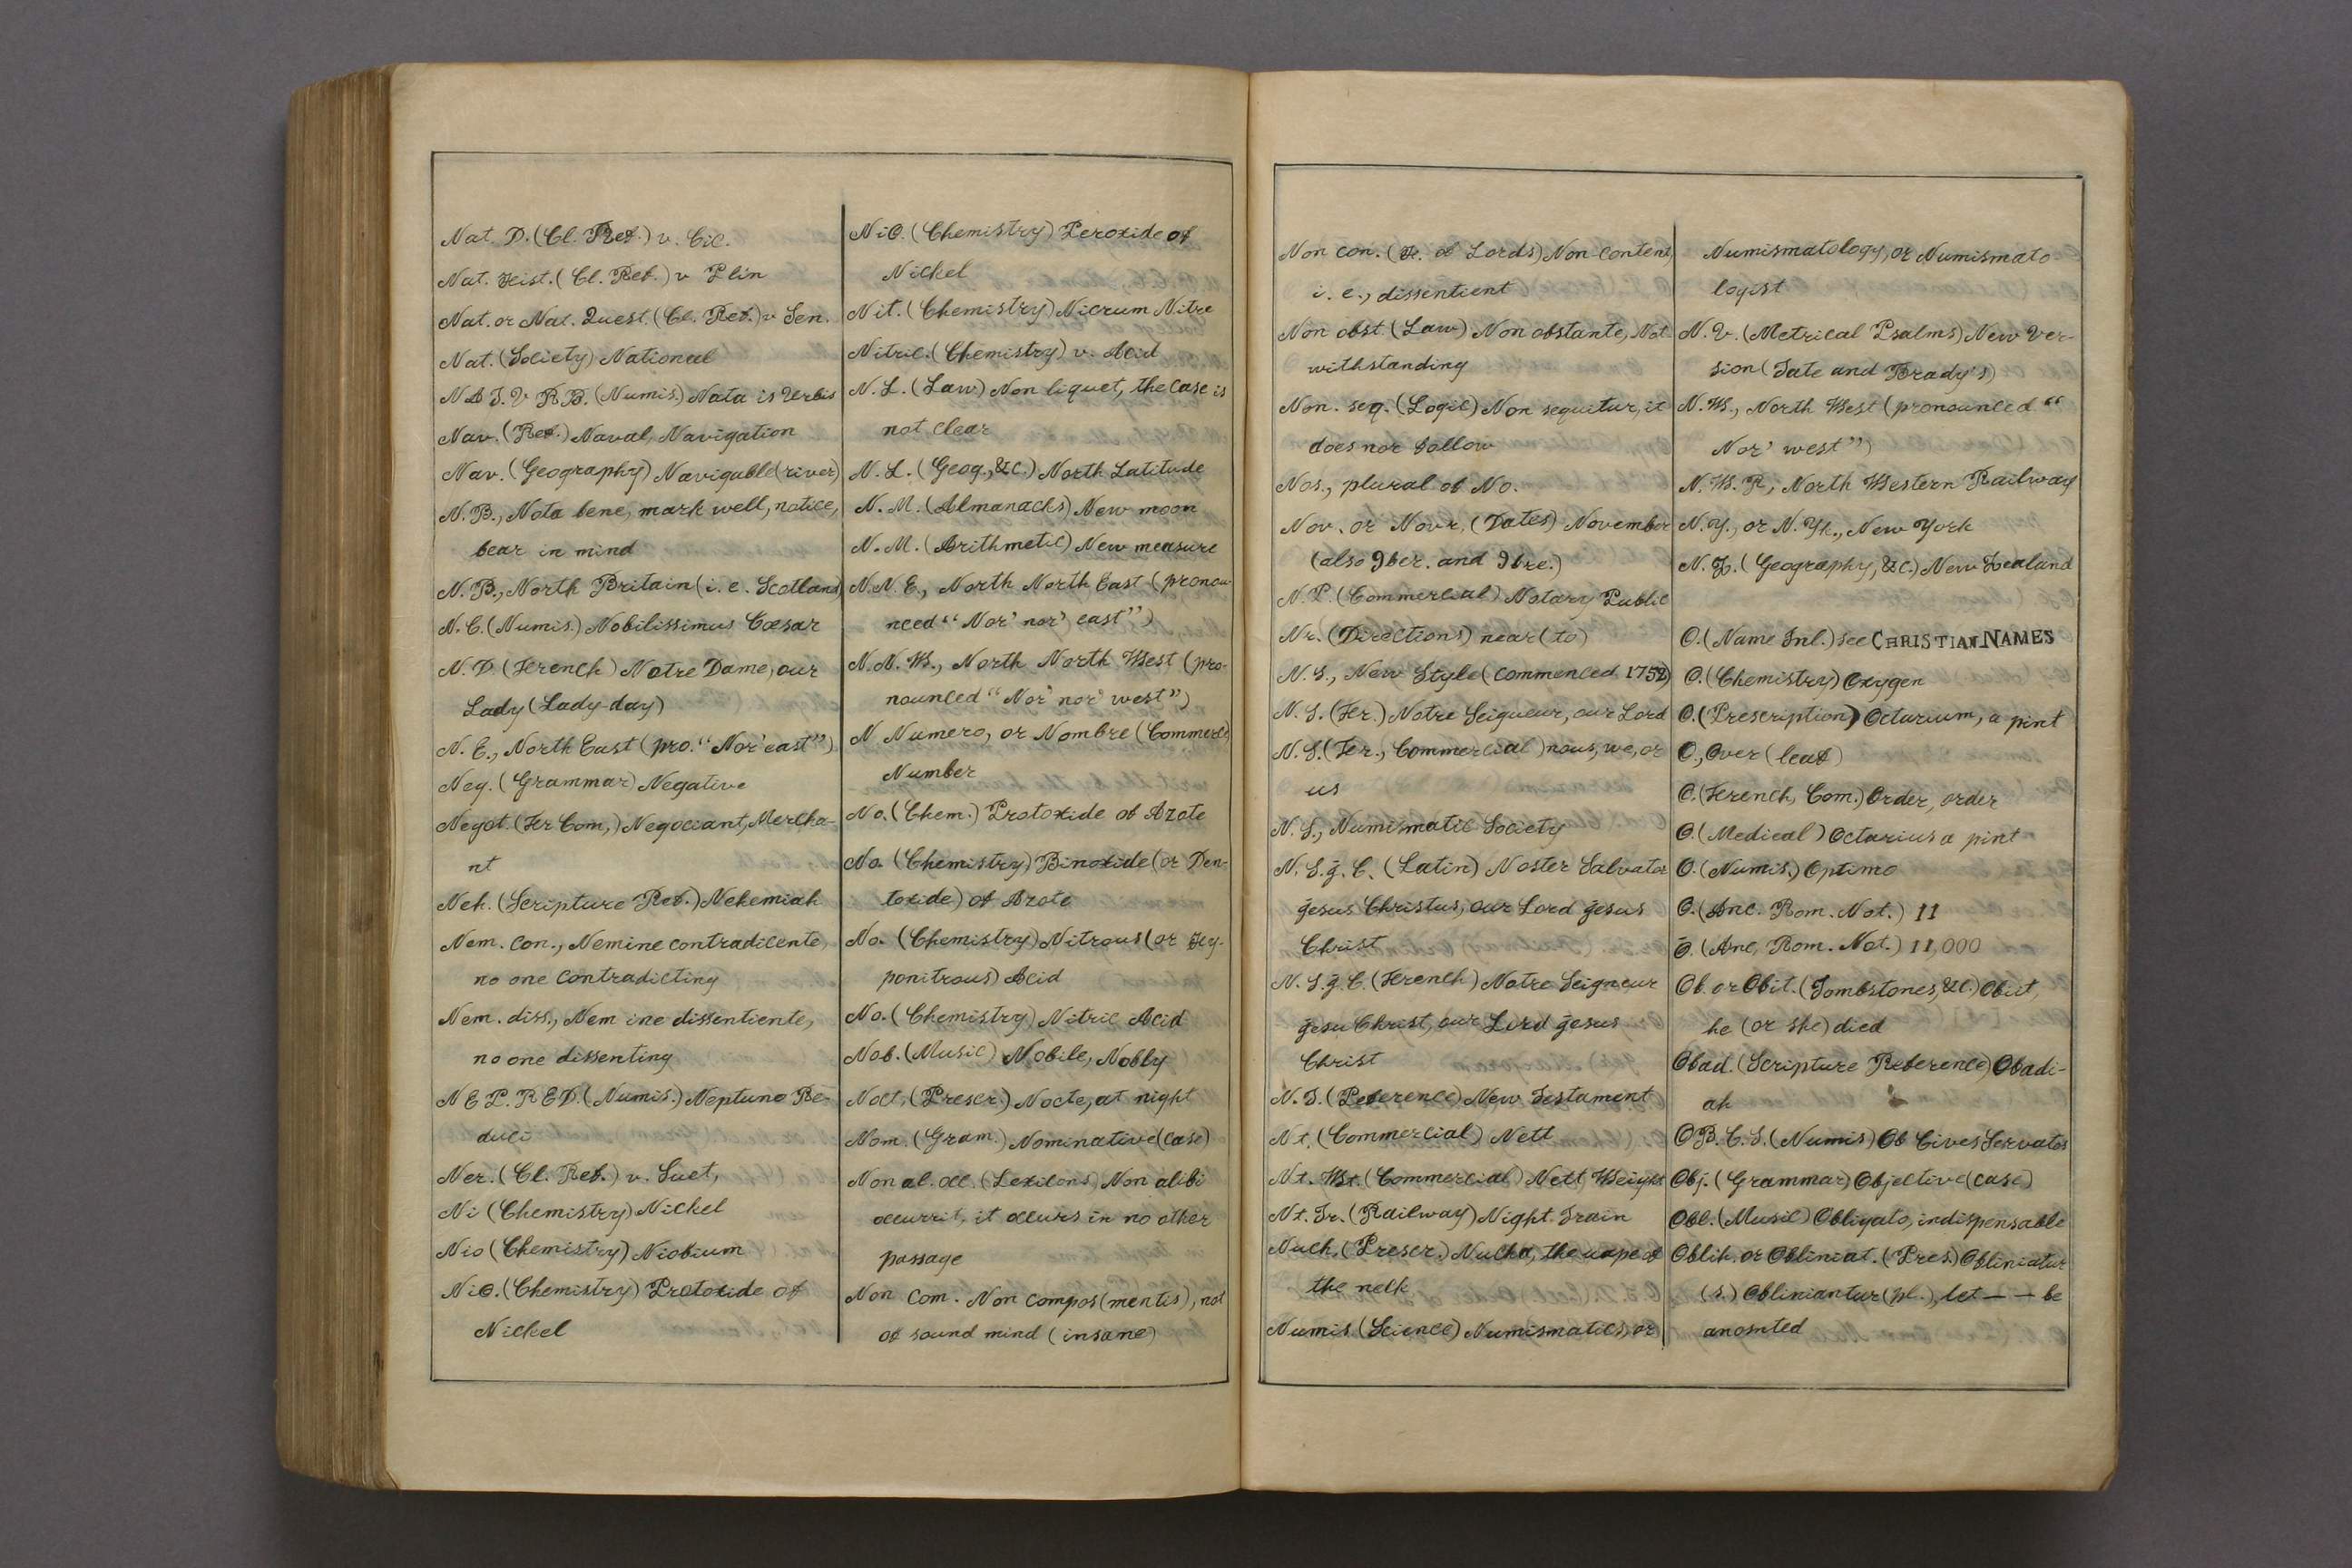 Nat. D. (Cl. Ref.) v. Cic.
Nat. Hist. (Cl. Ref.) v Plin
Nat. or Nat. Quest. (Cl. Ref.) v Sen.
Nat. (Society) National
NA T. V RB. (Numis.) Nata is Urbis
Nav. (Ref.) Naval, Navigation
Nav. (Geography) Navigable (river)
N. B., Nota bene, mark well, notice,
bear in mind
N. B., North Britain (i. e. Scotland)
N. C. (Numis.) Nobilissimus Cæsar
N. D. (French) Notre Dame, our
Lady (Lady-day)
N. E., North East (pro. "Nor' east")
Neg. (Grammar) Negative
Negot. (Fer Com,) Negociant, Mercha-
nt
Neh. (Scripture Ref.) Nehemiah
Nem. con., Nemine contradicente,
no one contradicting
Nem. diss., Nem ine dissentiente,
no one dissenting
NEP. RED. (Numis.) Neptuno Re-
duci
Ner. (Cl. Ref.) v. Suet,
Ni (Chemistry) Nickel
Nio (Chemistry) Niobium
NiO. (Chemistry) Protoxide of
Nickel
NiO. (Chemistry) Peroxide of
Nickel
Nit. (Chemistry) Nicrum Nitre
Nitric. (Chemistry) v. Acid
N. L. (Law) Non liquet, the case is
not clear
N. L. (Geog., &c.) North Latitude
N. M. (Almanacks) New moon
N. M. (Arithmetic) New measure
N. N. E., North North East (pronou
nced "Nor' nor' east")
N. N. W., North North West (pro-
nounced "Nor' nor' west")
N Numero, or Nombre (Commerc)
Number
No. (Chem.) Protoxide of Azote
No. (Chemistry) Binoxide (or Den-
toxide) of Azote
No. (Chemistry) Nitrous (or Hy-
ponitrous) Acid
No. (Chemistry) Nitric Acid
Nob. (Music) Nobile, Nobly
Noct, (Prescr.) Nocte, at night
Nom. (Gram.) Nominative (case)
Non al. occ. (Lexicons) Non alibi
occurrit, it occurs in no other
passage
Non Com. Non compos (mentis), not
of sound mind (insane)
Non con. (H. of Lords) Non-content,
i. e., dissentient
Non obst (Law) Non obstante, Not-
withstanding
Non. seq. (Logic) Non sequitur, it
does nor follow
Nos., plural of No.
Nov. or Novr. (Dates) November
(also 9ber. and 9bre.)
N. P. (Commercial) Notary Public
Nr. (Directions) near (to)
N. S., New Style (commenced 1752)
N. S. (Fer.) Notre Seigueur, our Lord
N. S. (Fer., Commercial) nous, we, or
us
N. S., Numismatic Society
N. S. J. C. (Latin) Noster Salvator
Jesus Christus, our Lord Jesus
Christ
N. S. J. C. (French) Notre Seigneur
Jesu Christ, our Lord Jesus
Christ
N. T. (Peference) New Testament
Nt. (Commercial) Nett
Nt. Wt. (Commercial) Nett Weight
Nt. Tr. (Railway) Night Train
Nuch, (Prescr.) Nucha, the uape of
the neck
Numis (Science) Numismatics, or
Numismatology, or Numismato
logist
N. V. (Metrical Psalms) New Ver-
sion (Tate and Brady's)
N. W., North West (pronounced "
Nor' west")
N. W. R, North Western Railway
N. Y., or N. Yk., New York
N. Z. (Geography, &c.) New Zealand
O. (Name Inl.) see CHRISTIAN NAMES
O. (Chemistry) Oxygen
O. (Prescription) Octarium, a pint
O., Over (leaf)
O. (French, Com.) Order, order
O. (Medical) Octarius a pint
O. (Numis.) Optimo
O. (Anc. Rom. Not.) 11
Ō. (Anc, Rom. Not.) 11,000
Ob. or Obit. (Tombstones, &c.) Obiit,
he (or she) died
Obad. (Scripture Reference) Obadi-
ah
OB. C. S. (Numis) Ob Cives Servatos
Obj. (Grammar) Objective (case)
Obl. (Music) Obligato, indispensable
Oblih. or Obliniat. (Pres.) Obliniatur
(s.) Obliniantur (pl.), let — — be
anosnted